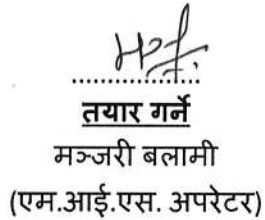 तयार गर्ने
मञ्जरी बलामी
(एम.आई.एस. अपरेटर)